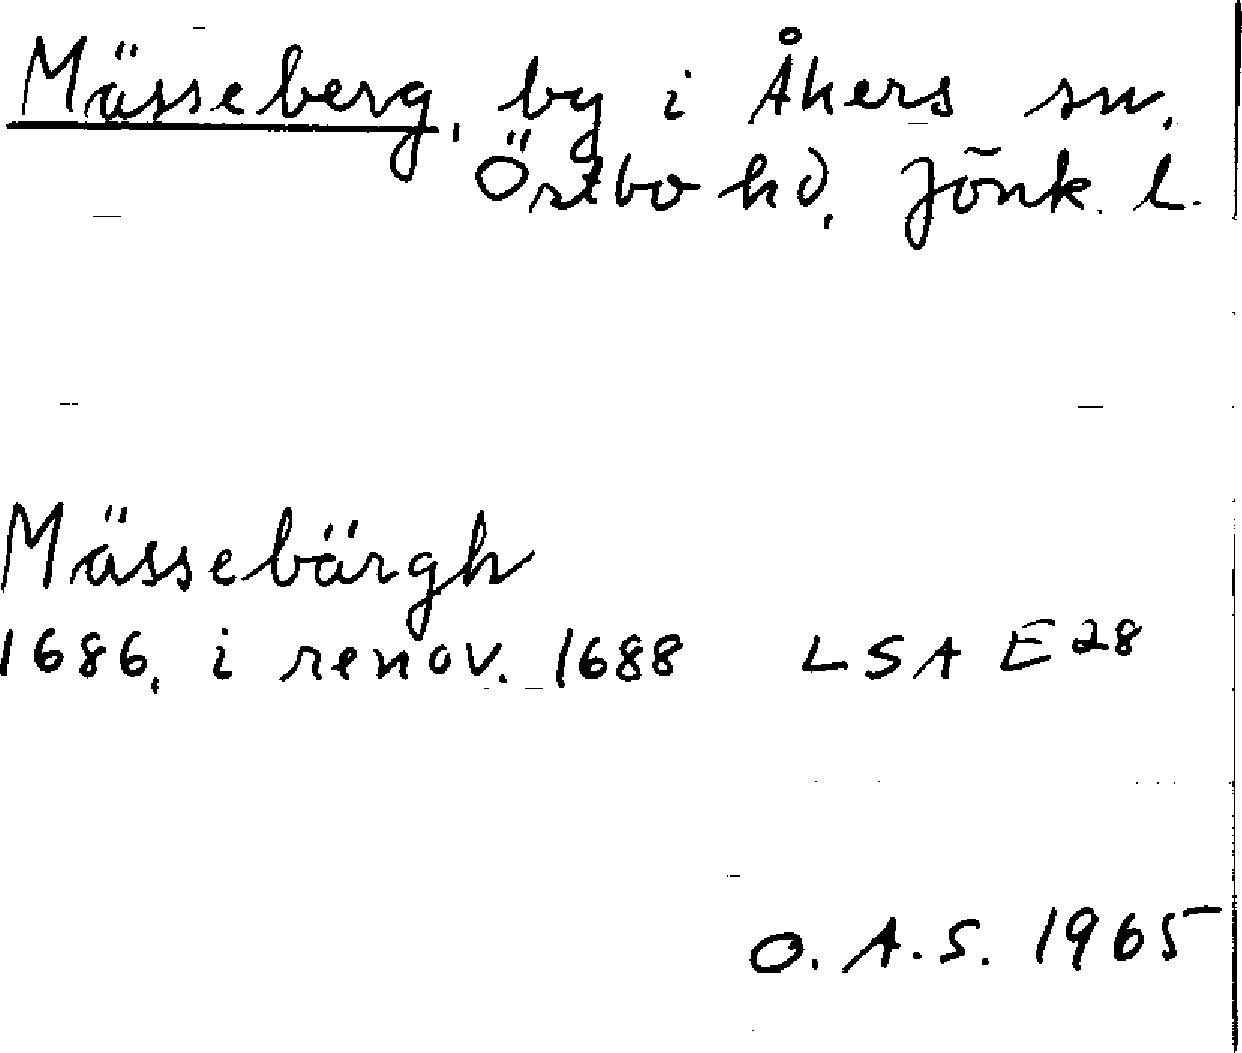 Mässeberg, by i Åkers sn,
Östbo hd, Jönk. l.
Mässebärgh
1686, i renov. 1688 LSA E28
O. A. S. 1965